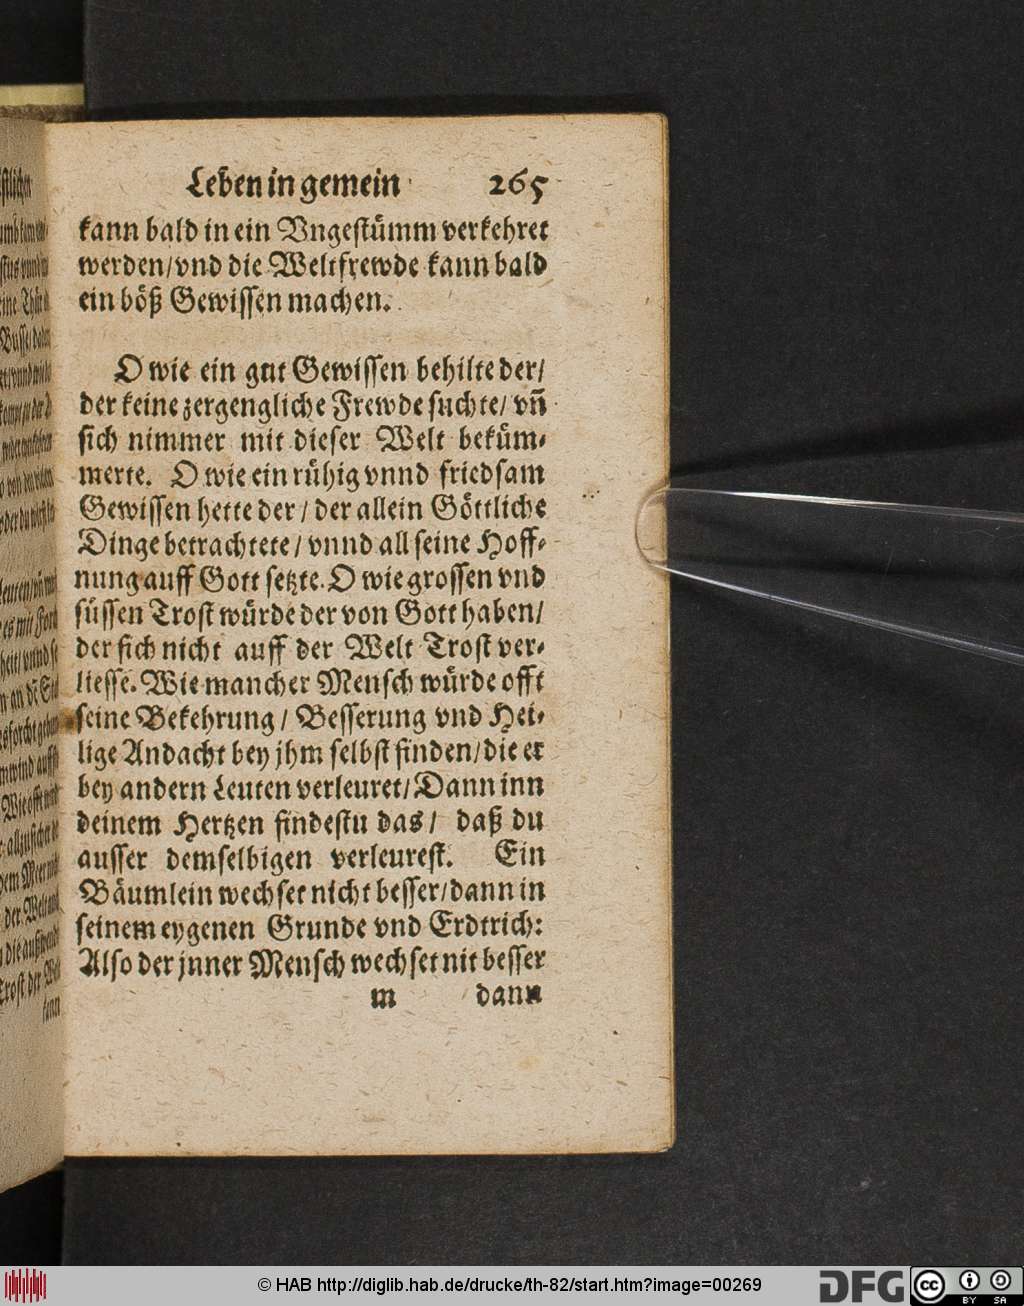 Leben in gemein 265
kann bald in ein Vngestümm verkehret
werden/vnd die Weltfrewde kann bald
ein böß Gewissen machen.
O wie ein gut Gewissen behilte der/
der keine zergengliche Frewde suchte/ vñ
sich nimmer mit dieser Welt beküm-
merte. O wie ein rühig vnnd friedsam
Gewissen hette der / der allein Göttliche
Dinge betrachtete / vnnd all seine Hoff-
nung auff Gott setzte. O wie grossen vnd
süssen Trost würde der von Gott haben/
der sich nicht auff der Welt Trost ver-
liesse. Wie mancher Mensch würde offt
seine Bekehrung / Besserung vnd Hei-
lige Andacht bey jhm selbst finden/die er
bey andern Leuten verleuret/ Dann inn
deinem Hertzen findestu das/ daß du
ausser demselbigen verleurest. Ein
Bäumlein wechset nicht besser/dann in
seinem eygenen Grunde vnd Erdtrich:
Also der jnner Mensch wechset nit besser
m dann
© HAB http://diglib.hab.de/drucke/th-82/start.htm?image=00269
DFG
cc BY SA